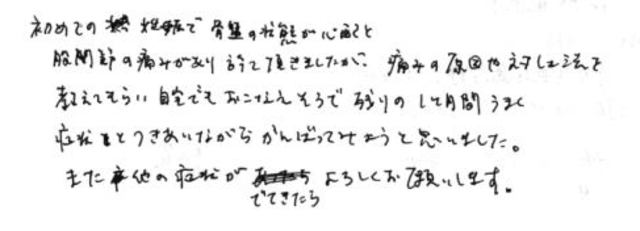 初めての妊娠で骨盤の状態が心配と
股関節の痛みがあり診て頂きましたが、痛みの原因や対処法を
教えてもらい自宅でもおこなえそうで残りの1ヶ月間うまく
症状とつきあいながらがんばってみようと思いました。
また他の症状がでてきたらよろしくお願いします。